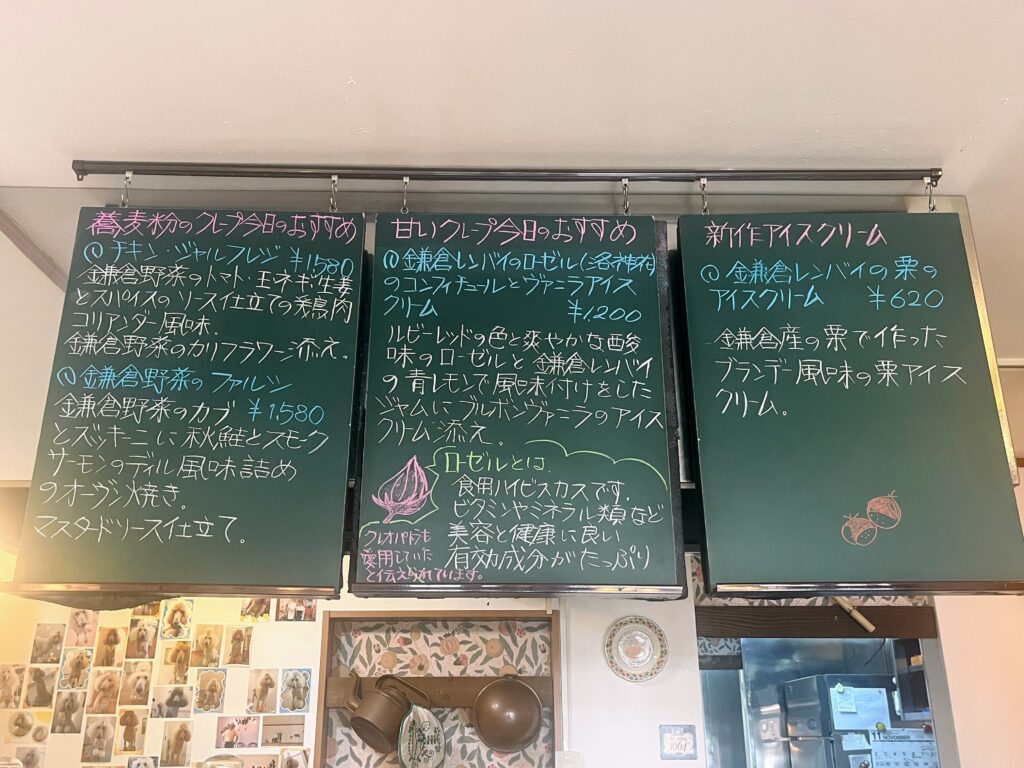 蕎麦粉のクレープ今日のおすすめ
チキン・ジャルフレジ ¥1,580
鎌倉野菜のトマト・玉ネギ・生姜
とスパイスのソース仕立ての鶏肉
コリアンダー風味.
鎌倉野菜のカリフラワー添え.
鎌倉野菜のファルシ
鎌倉野菜のカブ ¥1,580
とズッキーニに秋鮭とスモーク
サーモンのディル風味詰め
のオーヴン焼き.
マスタードソース仕立て。
甘いクレープ今日のおすすめ
鎌倉レンバイのロゼル(洛神花)
のコンフィチュールとヴァニラアイス
クリーム ¥1,200
ルビーレッドの色と爽やかな酸
味のロゼルと鎌倉レンバイ
の青レモンで風味付けをした
ジャムにブルボンヴァニラのアイス
クリーム添え.
ロゼルとは、
食用ハイビスカスです.
ビタミンやミネラル類など
美容と健康に良い
有効成分がたっぷり
クレオパトラも
愛用していた
と伝えられています。
新作アイスクリーム
鎌倉レンバイの栗の
アイスクリーム ¥620
鎌倉産の栗で作った
ブランデー風味の栗アイス
クリーム。
11 NOVEMBER